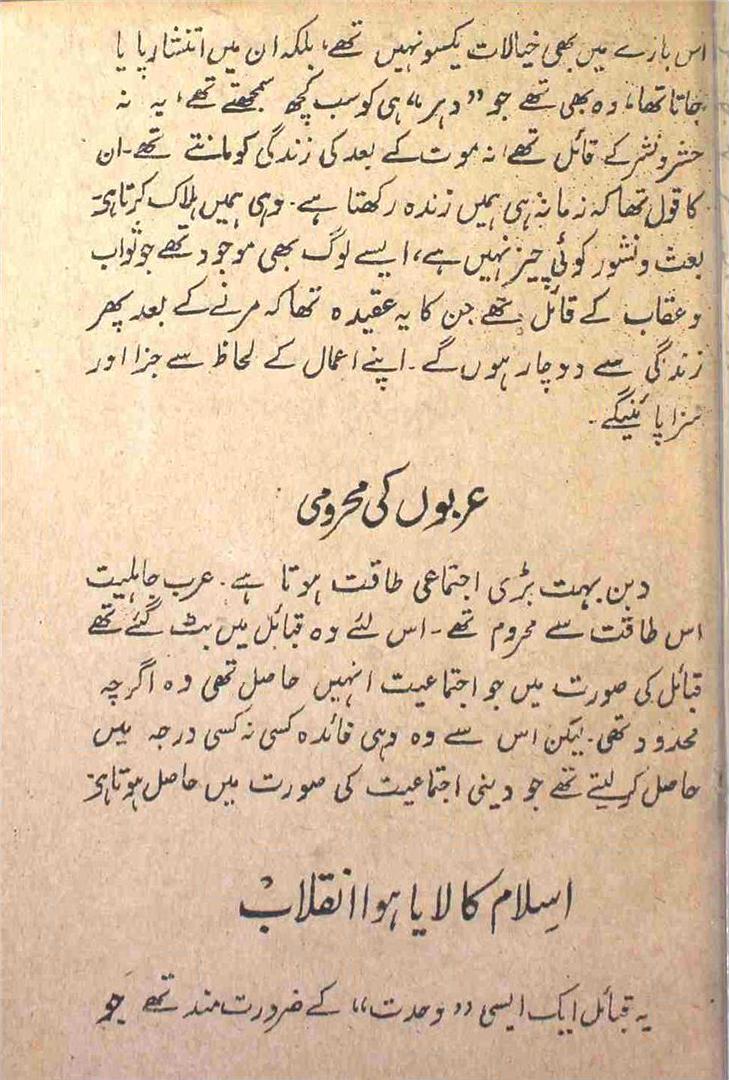 اس بارے میں بھی خیالات یکسو نہیں تھے، بلکہ ان میں انتشار پایا
جاتا تھا، وہ بھی تھے جو ”دہر“ ہی کو سب کچھ سمجھتے تھے، یہ نہ
حشر و نشر کے قائل تھے، نہ موت کے بعد کی زندگی کو مانتے تھے۔ ان
کا قول تھا کہ زمانہ ہی ہمیں زندہ رکھتا ہے۔ وہی ہمیں ہلاک کرتا ہے
بعث و نشور کوئی چیز نہیں ہے، ایسے لوگ بھی موجود تھے جو ثواب
و عقاب کے قائل تھے جن کا یہ عقیدہ تھا کہ مرنے کے بعد پھر
زندگی سے دوچار ہوں گے۔ اپنے اعمال کے لحاظ سے جزا اور
سزا پائینگے۔
عربوں کی محرومی
دین بہت بڑی اجتماعی طاقت ہوتا ہے۔ عرب جاہلیت
اس طاقت سے محروم تھے۔ اس لئے وہ قبائل میں بٹ گئے تھے
قبائل کی صورت میں جو اجتماعیت انہیں حاصل تھی وہ اگرچہ
محدود تھی۔ لیکن اس سے وہ وہی فائدہ کسی نہ کسی درجہ میں
حاصل کر لیتے تھے جو دینی اجتماعیت کی صورت میں حاصل ہوتا ہے
اسلام کا لایا ہوا انقلاب
یہ قبائل ایک ایسی ”وحدت“ کے ضرورت مند تھے جو